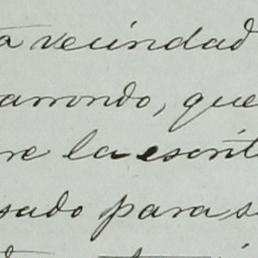 ta vecindad
arrondo, que
re la escrit
sado para s